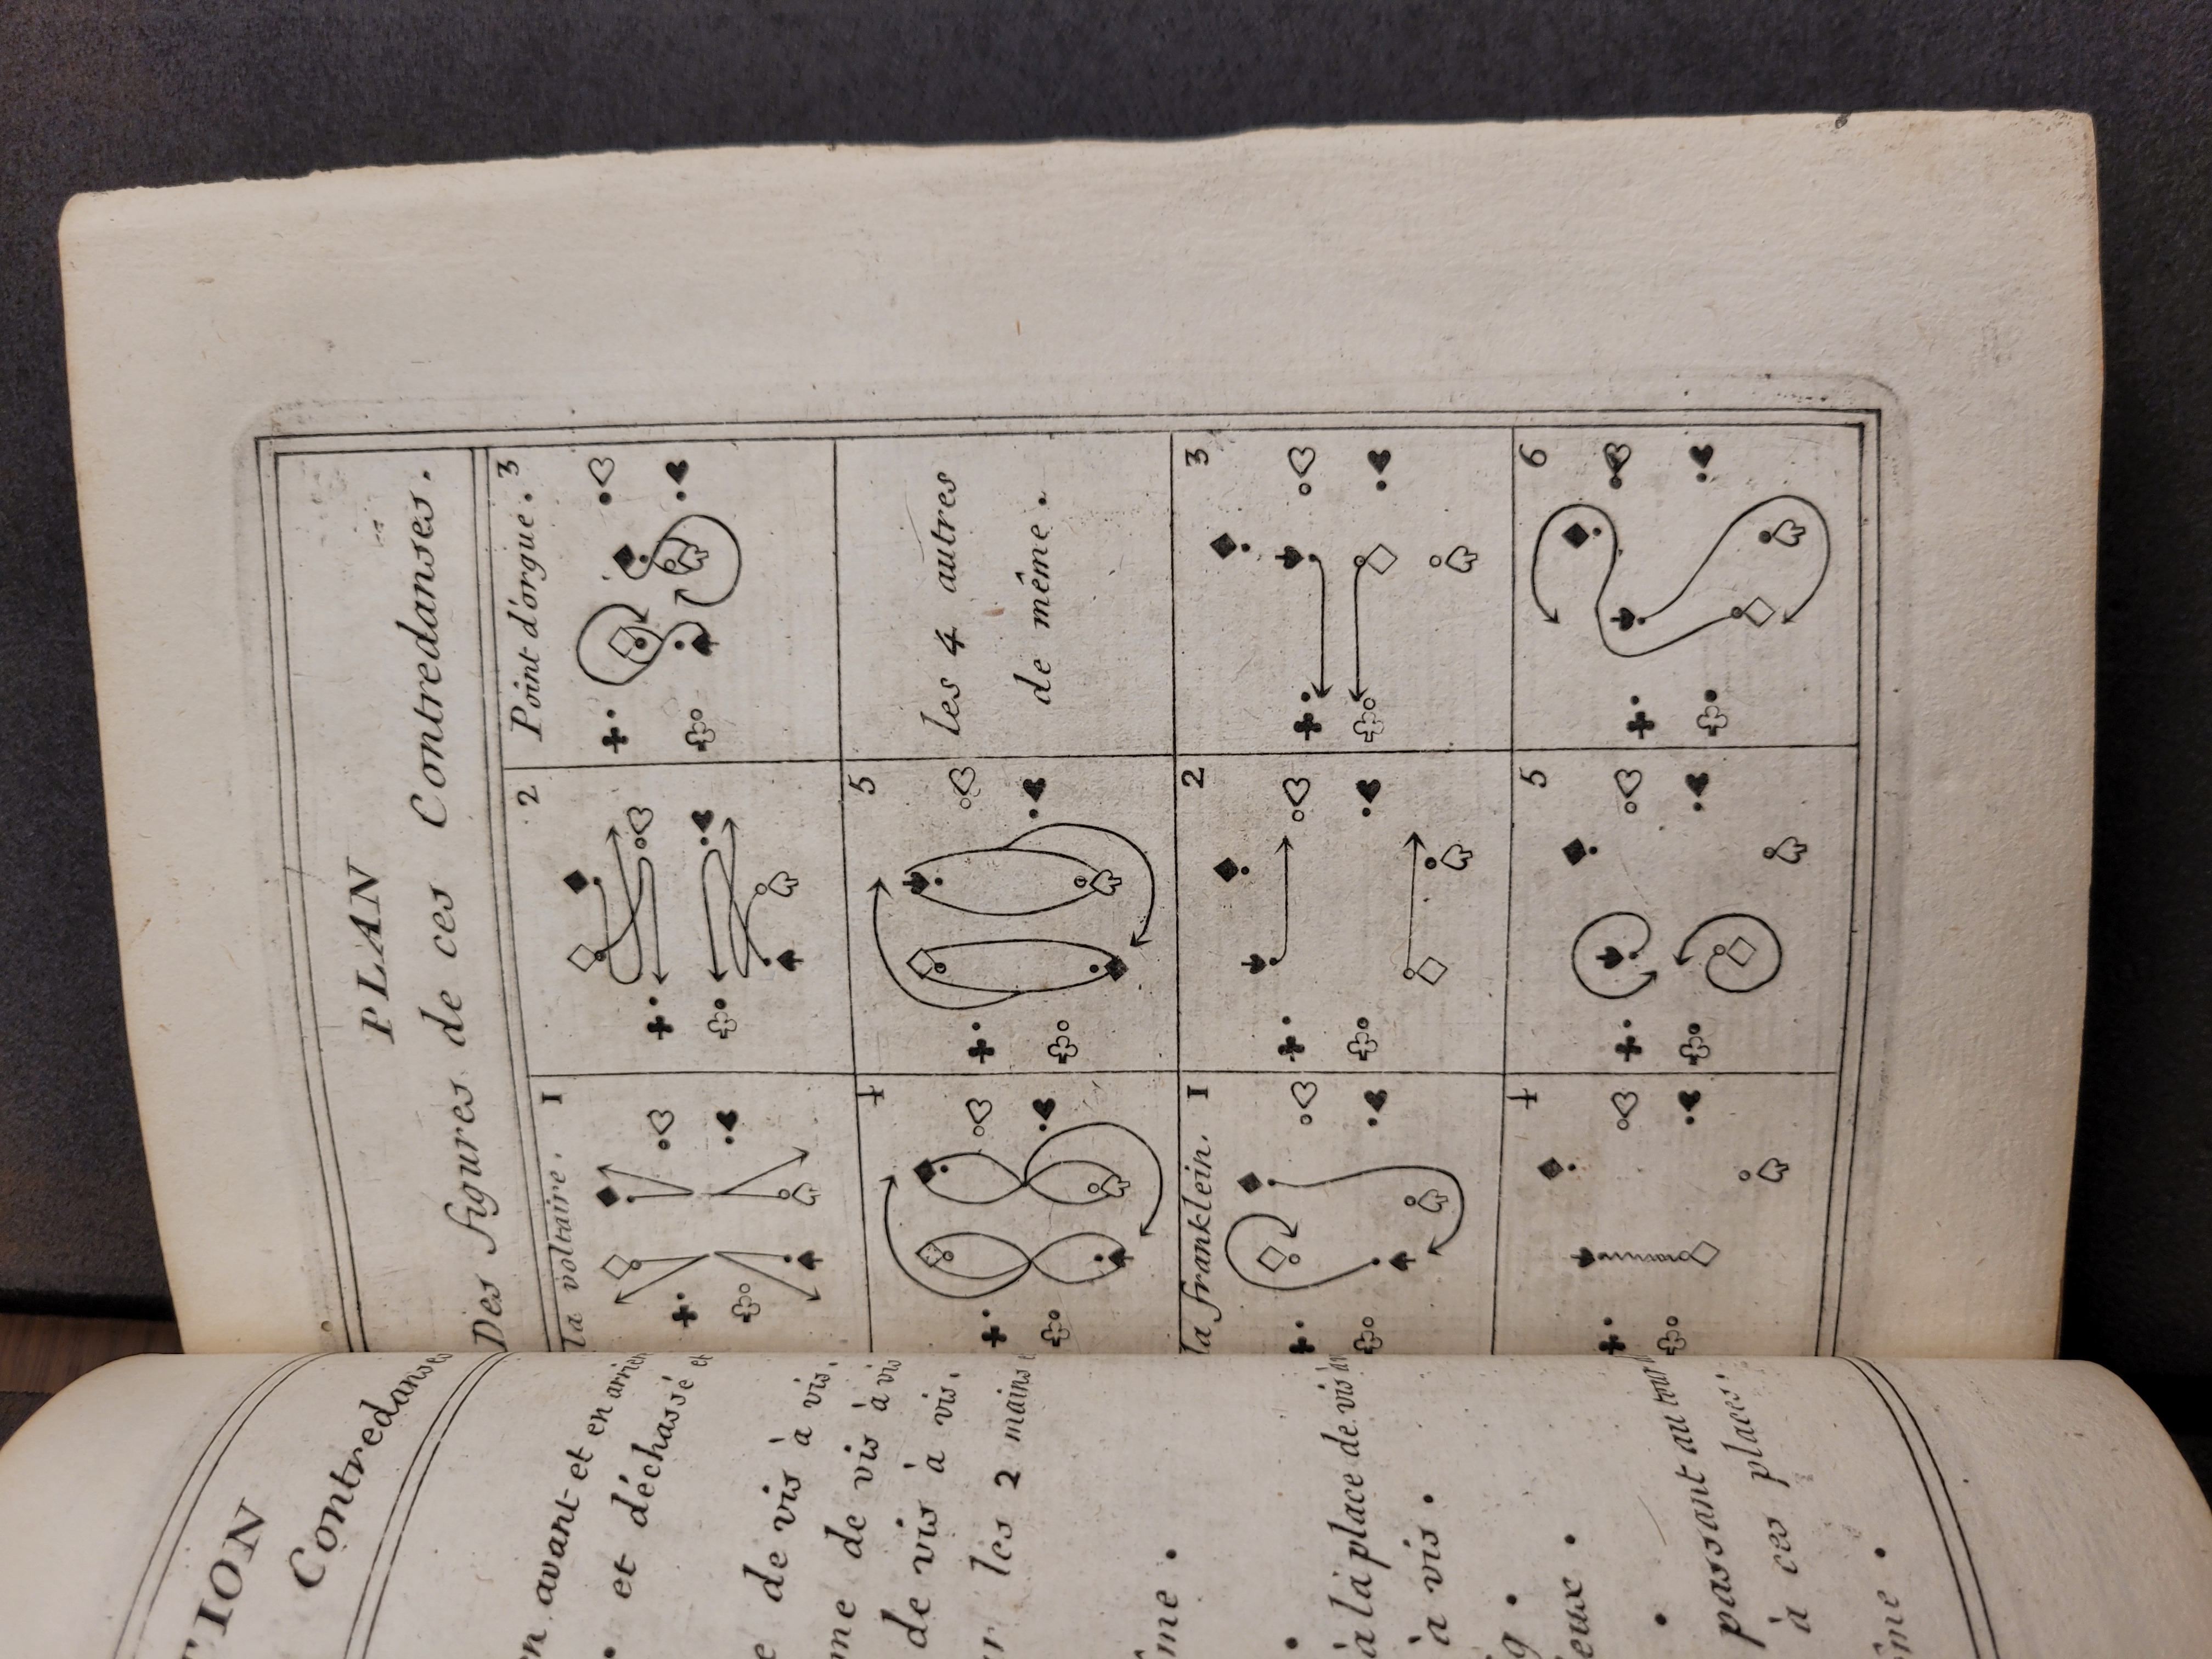 PLAN
Des figures de ces Contredanses.
la voltaire. 1
2
Point d'orgue. 3
4
5
les 4 autres
de même.
la franklein. 1
2
3
4
5
6
TION
Contredanses
en avant et en arrier
et déchassé et
de vis à vis.
me de vis à vis
de vis à vis.
les 2 mains
ême.
à la place de vis à
à vis.
eux.
passant au tour
à ces places.
ême.